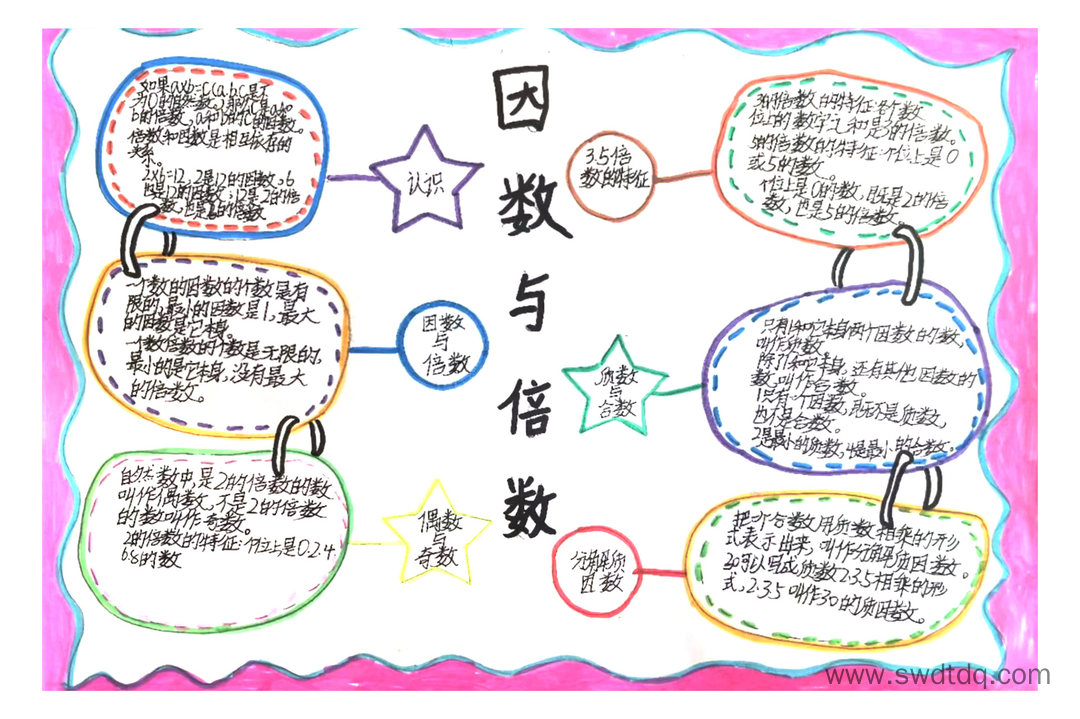 因
数
与
倍
数
如果a×b=c(a.b.c是不
为0的自然数),那么c是a和
b的倍数,a和b是c的因数。
倍数和因数是相互依存的
关系。
2×6=12,2是12的因数,6
也是12的因数;12是2的倍
数,也是6的倍数
认识
一个数的因数的个数是有
限的,最小的因数是1,最大
的因数是它本身。
一个数倍数的个数是无限的,
最小的是它本身,没有最大
的倍数。
因数
与
倍数
自然数中,是2的倍数的数
叫作偶数,不是2的倍数
的数叫作奇数。
2的倍数的特征:个位上是0.2.4
6.8的数
偶数
与
奇数
3.5倍
数的特征
3的倍数的特征:各个数
位上的数字之和是3的倍数。
5的倍数的特征:个位上是0
或5的数。
个位上是0的数,既是2的倍
数,也是5的倍数。
质数
与
合数
只有1和它本身两个因数的数,
叫作质数。
除了1和它本身,还有其他因数的
数,叫作合数。
1只有一个因数,既不是质数,
也不是合数。
2是最小的质数,4是最小的合数。
分解质
因数
把一个合数用质数相乘的形
式表示出来,叫作分解质因数。
30可以写成质数2.3.5相乘的形
式,2.3.5叫作30的质因数。
www.swdtdq.com